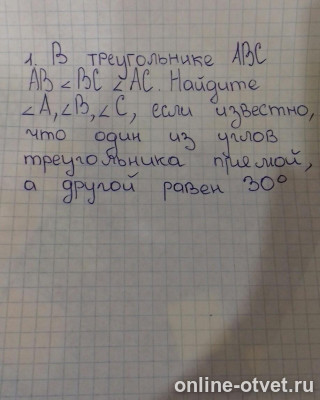 1. В треугольнике ABC
AB < BC < AC. Найдите
∠A, ∠B, ∠C, если известно,
что один из углов
треугольника прямой,
а другой равен 30°
online-otvet.ru